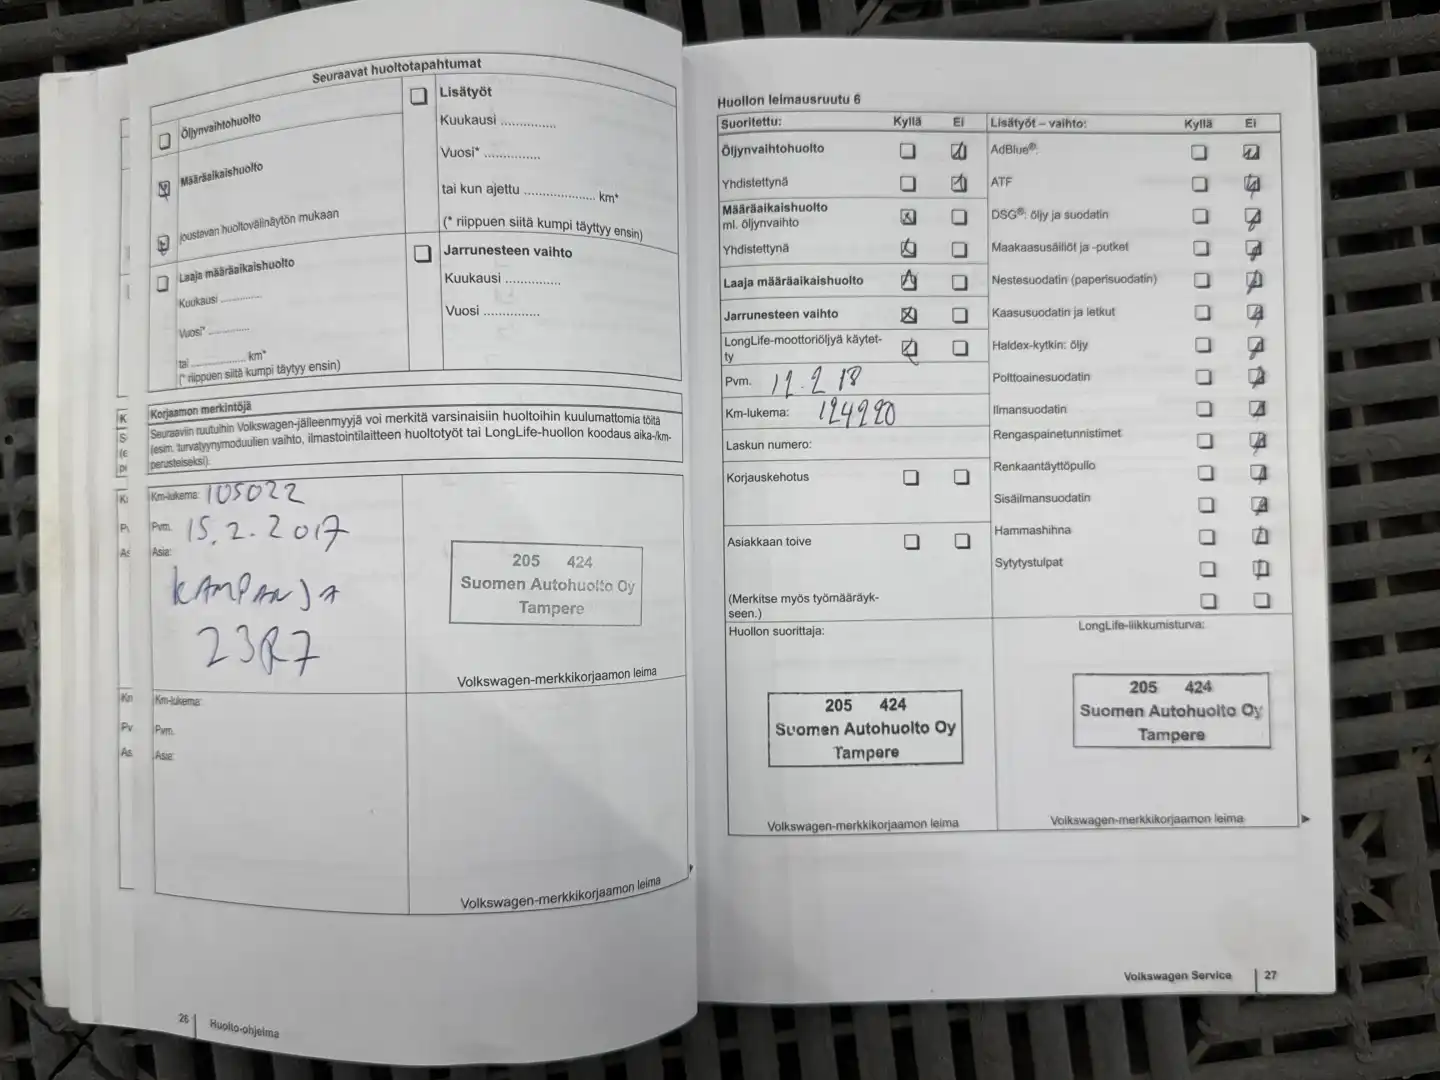 Seuraavat huoltotapahtumat
Öljynvaihtohuolto
Määräaikaishuolto
joustavan huoltovälinäytön mukaan
Laaja määräaikaishuolto
Kuukausi ..............
Vuosi* ..............
tai .................. km*
(* riippuen siitä kumpi täytyy ensin)
Lisätyöt
Kuukausi ..............
Vuosi* ..............
tai kun ajettu .................. km*
(* riippuen siitä kumpi täyttyy ensin)
Jarrunesteen vaihto
Kuukausi ..............
Vuosi ..............
Korjaamon merkintöjä
Seuraaviin ruutuihin Volkswagen-jälleenmyyjä voi merkitä varsinaisiin huoltoihin kuulumattomia töitä
(esim. turvatyynymoduulien vaihto, ilmastointilaitteen huoltotyöt tai LongLife-huollon koodaus aika-/km-
perusteiseksi).
Km-lukema: 105022
Pvm. 15.2.2017
Asia:
KAMPANJA
23R7
205 424
Suomen Autohuolto Oy
Tampere
Volkswagen-merkkikorjaamon leima
Km-lukema:
Pvm.
Asia:
Volkswagen-merkkikorjaamon leima
26 Huolto-ohjelma
Huollon leimausruutu 6
Suoritettu: Kyllä Ei
Öljynvaihtohuolto
Yhdistettynä
Määräaikaishuolto
ml. öljynvaihto
Yhdistettynä
Laaja määräaikaishuolto
Jarrunesteen vaihto
LongLife-moottoriöljyä käytet-
ty
Pvm. 12.2 18
Km-lukema: 124920
Laskun numero:
Korjauskehotus
Asiakkaan toive
(Merkitse myös työmääräyk-
seen.)
Lisätyöt – vaihto: Kyllä Ei
AdBlue®:
ATF
DSG®: öljy ja suodatin
Maakaasusäiliöt ja -putket
Nestesuodatin (paperisuodatin)
Kaasusuodatin ja letkut
Haldex-kytkin: öljy
Polttoainesuodatin
Ilmansuodatin
Rengaspainetunnistimet
Renkaantäyttöpullo
Sisäilmansuodatin
Hammashihna
Sytytystulpat
Huollon suorittaja:
205 424
Suomen Autohuolto Oy
Tampere
Volkswagen-merkkikorjaamon leima
LongLife-liikkumisturva:
205 424
Suomen Autohuolto Oy
Tampere
Volkswagen-merkkikorjaamon leima
Volkswagen Service 27